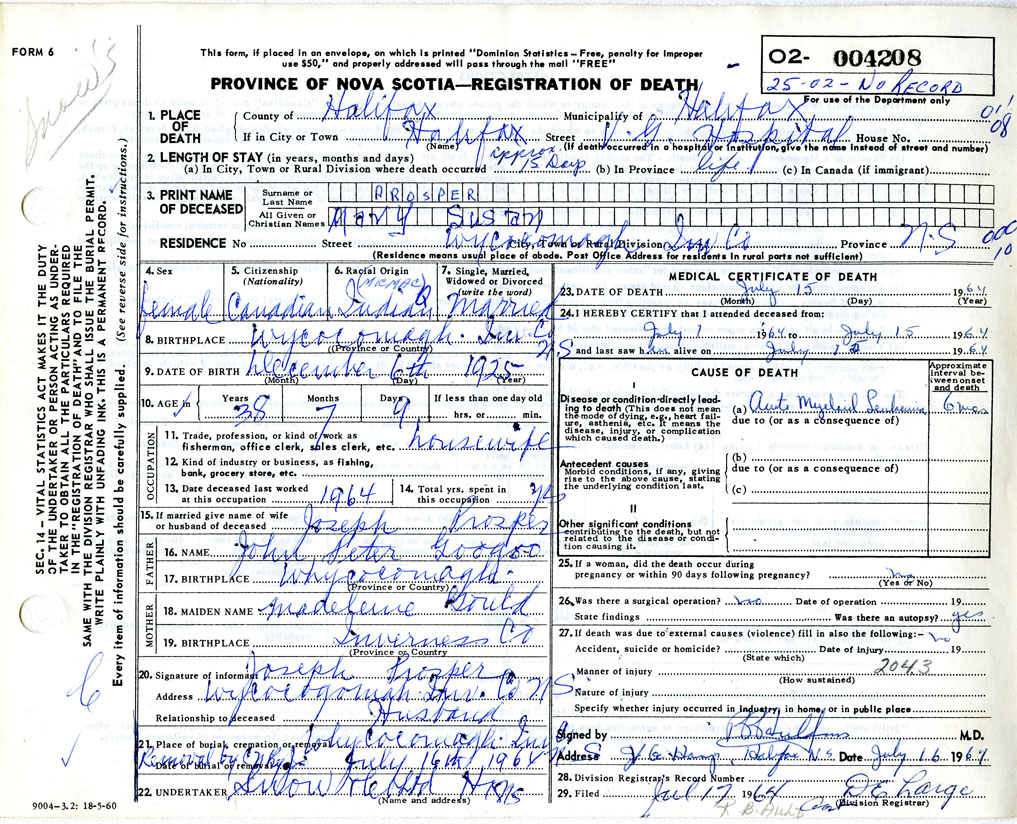 FORM 6
Snow's
This form, if placed in an envelope, on which is printed "Dominion Statistics – Free, penalty for improper
use $50," and properly addressed will pass through the mail "FREE"
PROVINCE OF NOVA SCOTIA—REGISTRATION OF DEATH
02- 004208
25-02-No RECORD
For use of the Department only
1. PLACE OF DEATH
County of Halifax Municipality of Halifax
If in City or Town Halifax Street V.G. Hospital House No.
(Name) (If death occurred in a hospital or institution, give the name instead of street and number)
2. LENGTH OF STAY (in years, months and days)
(a) In City, Town or Rural Division where death occurred approx. 15 Days (b) In Province life (c) In Canada (if immigrant)
3. PRINT NAME OF DECEASED
Surname or Last Name PROSPER
All Given or Christian Names Mary Susan
RESIDENCE No Street Wycocomagh Inv Co City, Town or Rural Division Province N.S
(Residence means usual place of abode. Post Office Address for residents in rural parts not sufficient)
4. Sex female
5. Citizenship (Nationality) Canadian
6. Racial Origin (MICMAC) Indian
7. Single, Married, Widowed or Divorced (write the word) Married
8. BIRTHPLACE Wycocomagh. Inv. Co N S
(Province or Country)
9. DATE OF BIRTH December 6th 1925
(Month) (Day) (Year)
10. AGE in Years 38 Months 7 Days 9 If less than one day old hrs. or min.
OCCUPATION
11. Trade, profession, or kind of work as
fisherman, office clerk, sales clerk, etc. housewife
12. Kind of industry or business, as fishing,
bank, grocery store, etc.
13. Date deceased last worked at this occupation 1964
14. Total yrs. spent in this occupation
15. If married give name of wife or husband of deceased Joseph Prosper
FATHER
16. NAME John Peter Googoo
17. BIRTHPLACE Whycocomagh
(Province or Country)
MOTHER
18. MAIDEN NAME Madeleine Gould
19. BIRTHPLACE Inverness Co
(Province or Country)
20. Signature of informant Joseph Prosper
Address Wycocogomah Inv. Co N S
Relationship to deceased Husband
21. Place of burial, cremation or removal Whycocomagh Inv Co N S
Date of burial or removal July 16th 1964
22. UNDERTAKER Snow
(Name and address)
9004–3.2: 18-5-60
SEC. 14 – VITAL STATISTICS ACT MAKES IT THE DUTY
OF THE UNDERTAKER OR PERSON ACTING AS UNDER-
TAKER TO OBTAIN ALL THE PARTICULARS REQUIRED
IN THE "REGISTRATION OF DEATH" AND TO FILE THE
SAME WITH THE DIVISION REGISTRAR WHO SHALL ISSUE THE BURIAL PERMIT.
WRITE PLAINLY WITH UNFADING INK. THIS IS A PERMANENT RECORD.
Every item of information should be carefully supplied. (See reverse side for instructions.)
MEDICAL CERTIFICATE OF DEATH
23. DATE OF DEATH July 15 1964
(Month) (Day) (Year)
24. I HEREBY CERTIFY that I attended deceased from:
July 1 1964 to July 15 1964
and last saw h alive on July 15 1964
CAUSE OF DEATH
Approximate interval between onset and death
I
Disease or condition directly lead-
ing to death (This does not mean
the mode of dying, e.g., heart fail-
ure, asthenia, etc. It means the
disease, injury, or complication
which caused death.)
(a) Acute Myeloid Leukemia 6 mos
due to (or as a consequence of)
Antecedent causes
Morbid conditions, if any, giving
rise to the above cause, stating
the underlying condition last.
(b)
due to (or as a consequence of)
(c)
II
Other significant conditions
contributing to the death, but not
related to the disease or condi-
tion causing it.
25. If a woman, did the death occur during
pregnancy or within 90 days following pregnancy? no
(Yes or No)
26. Was there a surgical operation? no Date of operation 19
State findings Was there an autopsy? yes
27. If death was due to external causes (violence) fill in also the following:– no
Accident, suicide or homicide? Date of injury 19
(State which)
2043
Manner of injury
(How sustained)
Nature of injury
Specify whether injury occurred in industry, in home, or in public place
Signed by M.D.
Address V.G. Hosp. Halifax N.S Date July 16 1964
28. Division Registrar's Record Number
29. Filed Jul 17 1964 D E Large
(Division Registrar)